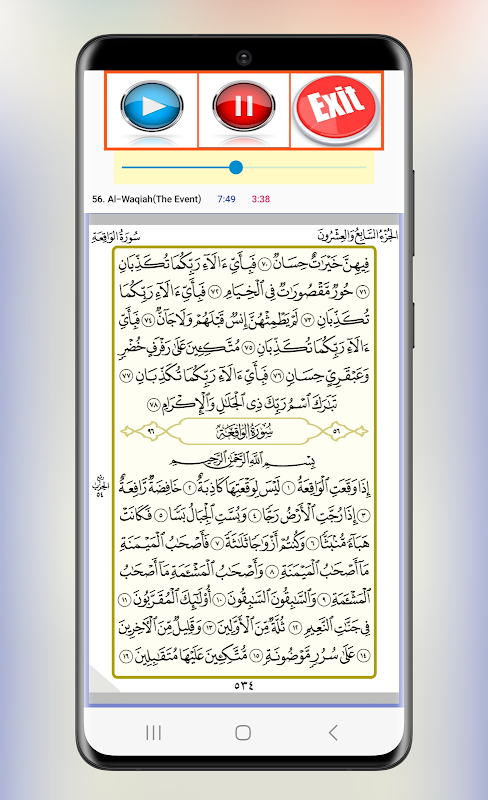 Exit
56. Al-Waqiah(The Event) 7:49 3:38
سُورَةُ الوَاقِعَةِ الجُزْءُ السَّابِعُ وَالعِشْرُونَ
فِيهِنَّ خَيْرَٰتٌ حِسَانٌ ٧٠ فَبِأَيِّ ءَالَآءِ رَبِّكُمَا تُكَذِّبَانِ
٧١ حُورٌ مَّقْصُورَٰتٌ فِي الْخِيَامِ ٧٢ فَبِأَيِّ ءَالَآءِ رَبِّكُمَا
تُكَذِّبَانِ ٧٣ لَمْ يَطْمِثْهُنَّ إِنسٌ قَبْلَهُمْ وَلَا جَآنٌّ ٧٤ فَبِأَيِّ
ءَالَآءِ رَبِّكُمَا تُكَذِّبَانِ ٧٥ مُتَّكِـِٔينَ عَلَىٰ رَفْرَفٍ خُضْرٍ
وَعَبْقَرِيٍّ حِسَانٍ ٧٦ فَبِأَيِّ ءَالَآءِ رَبِّكُمَا تُكَذِّبَانِ ٧٧
تَبَٰرَكَ اسْمُ رَبِّكَ ذِي الْجَلَٰلِ وَالْإِكْرَامِ ٧٨
٩٦ سُورَةُ الوَاقِعَةِ ٥٦
بِسْمِ اللَّهِ الرَّحْمَٰنِ الرَّحِيمِ
إِذَا وَقَعَتِ الْوَاقِعَةُ ١ لَيْسَ لِوَقْعَتِهَا كَاذِبَةٌ ٢ خَافِضَةٌ رَّافِعَةٌ
٣ إِذَا رُجَّتِ الْأَرْضُ رَجًّا ٤ وَبُسَّتِ الْجِبَالُ بَسًّا ٥ فَكَانَتْ
هَبَآءً مُّنۢبَثًّا ٦ وَكُنتُمْ أَزْوَٰجًا ثَلَٰثَةً ٧ فَأَصْحَٰبُ الْمَيْمَنَةِ
مَآ أَصْحَٰبُ الْمَيْمَنَةِ ٨ وَأَصْحَٰبُ الْمَشْـَٔمَةِ مَآ أَصْحَٰبُ
الْمَشْـَٔمَةِ ٩ وَالسَّٰبِقُونَ السَّٰبِقُونَ ١٠ أُو۟لَٰٓئِكَ الْمُقَرَّبُونَ ١١
فِي جَنَّٰتِ النَّعِيمِ ١٢ ثُلَّةٌ مِّنَ الْأَوَّلِينَ ١٣ وَقَلِيلٌ مِّنَ الْآخِرِينَ
١٤ عَلَىٰ سُرُرٍ مَّوْضُونَةٍ ١٥ مُّتَّكِـِٔينَ عَلَيْهَا مُتَقَٰبِلِينَ ١٦
الحِزْب
٥٤
٥٣٤